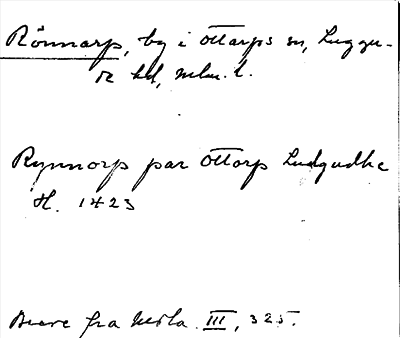 Rönnarp, by i Ottarps sn, Luggu-
de hd, Mlm. l.
Rynnorp par Ottorp Ludgudhe
H. 1423
Breve fra Mola III, 325.